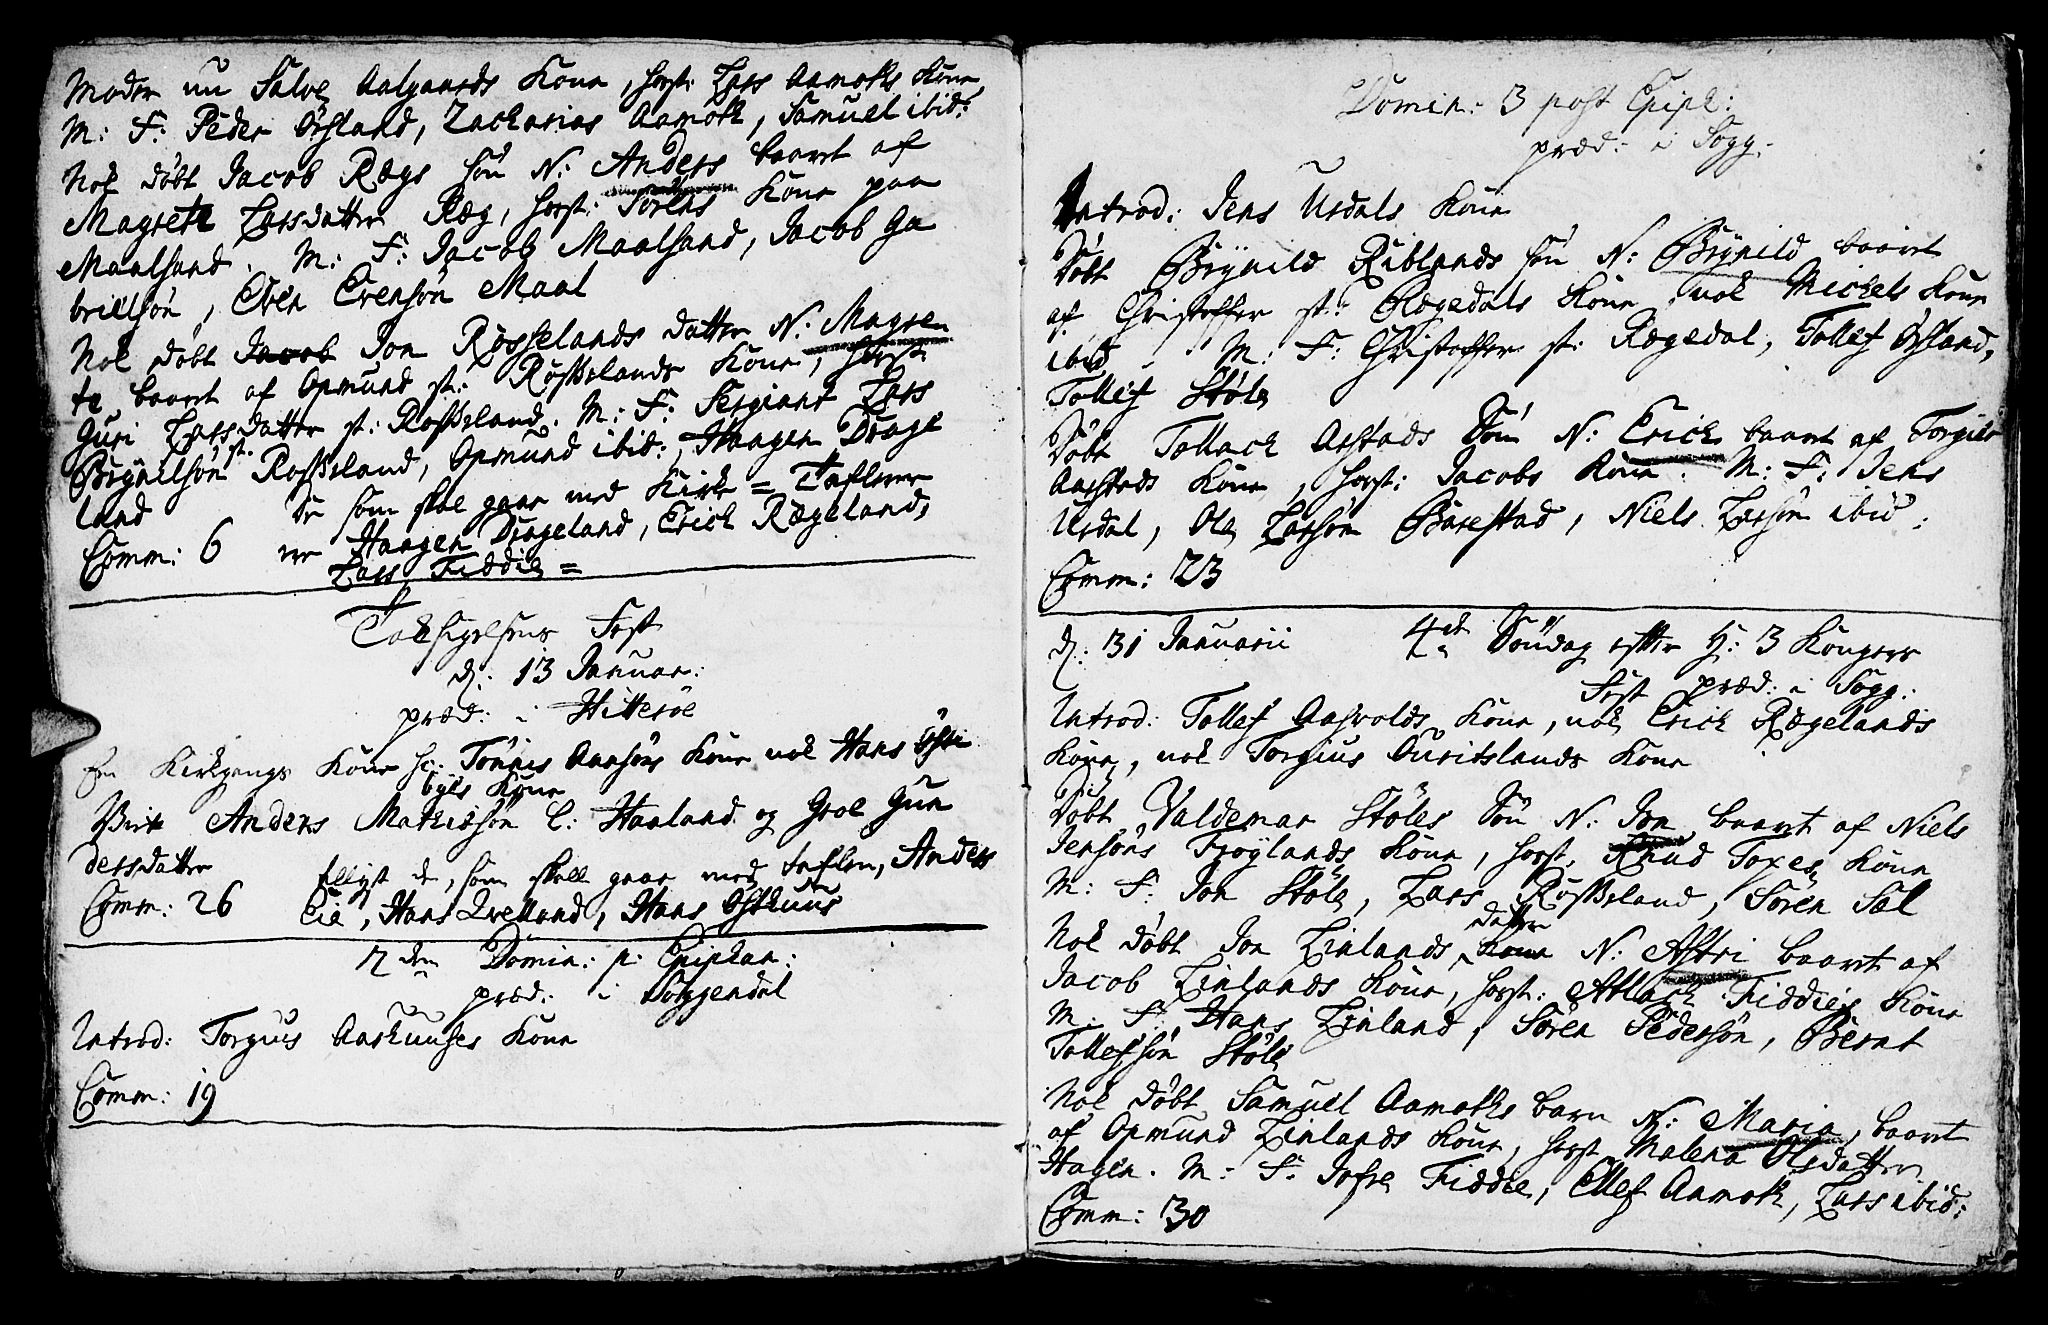 Moder nu Salve Aalgaards Kone, horst: Lars Aamoths Kone
M: F: Peder Örsland, Zacharias Aamoth, Samuel ibid:
Nok døbt Jacob Rægs søn N: Anders baaret af
Magrete Larsdatter Ræg, horst: Sørens Kone paa
Maalsand. M: F: Jacob Maalsand, Jacob Ga
brielsøn, Even Evensøn Maal
Nok døbt Jon Røsselands datter N: Magre
te baaret af Opmund st: Røsselands Kone, horst
Guri Larsdatter st: Rosseland. M: F: Sergiant Lars
Brynilsøn st. Rosseland, Opmund ibid:, Haagen Drage
land De som skal gaae med Kirke = Taflerne
Comm: 6 ere Haagen Drageland, Erich Rægeland,
Lars Fiddie =
Taksigelsens Fest
d: 13 Januar:
præd: i Hitterøe
En Kirkgangs Kone sc: Tönnes Aansöns Kone nok Hans Öste
byes Kone
Viet Anders Mathisøn L: Haaland og Groe Gun
dersdatter tillyst de, som skall gaae med taflen, Anders
Comm: 26 Eie, Hans Qvelland, Hans Østhuus
2den Domin: p: Epiphan:
præd: i Soggendal
Introd: Torgius Aashuuses Kone
Comm: 19
Domin: 3 post Epiph:
præd: i Sogg:
Introd: Jens Urdals Kone
Døbt Brynild Riblands søn N: Brynild baaret
af Christoffer st: Rægedals Kone, nok Michels Kone
ibid M: F: Christoffer st: Rægedal, Tollef Örsland,
Tollef Støle
Døbt Tollach Aastads Søn N: Erich baaret af Torgils
Aarstads Kone, horst: Jacobs Kone. M: F: Jens
Urdal, Ole Larsøn Barestad, Niels Larsøn ibid:
Comm: 23
d: 31 Januarii 4de Søndag efter H: 3 Kongers
Fest præd: i Sogg:
Introd: Tollef Aasvolds Kone, nok Erich Rægelands
Kone, nok Torgius Guritslands Kone
Døbt Valdemar Støles Søn N: Jon baaret af Niels
Jensøns Frøylands Kone, horst, Knud Toxes Kone
M: F: Jon Støle, Lars Røsseland, Søren Sæl
datter
Nok døbt Jon Linlands Kone N: Astri baaret af
Jacob Linlands Kone, horst: Atlach Fiddies Kone
M: F: Hans Linland, Søren Pedersøn, Bernt
Tollefsøn Støle
Nok døbt Samuel Aamoths barn N: Maria, baaret
af Opmund Linlands Kone, horst Malena Olsdatter
Hagen. M: F: Jofre Fiddie, Ellef Aamoth, Lars ibid:
Comm: 30